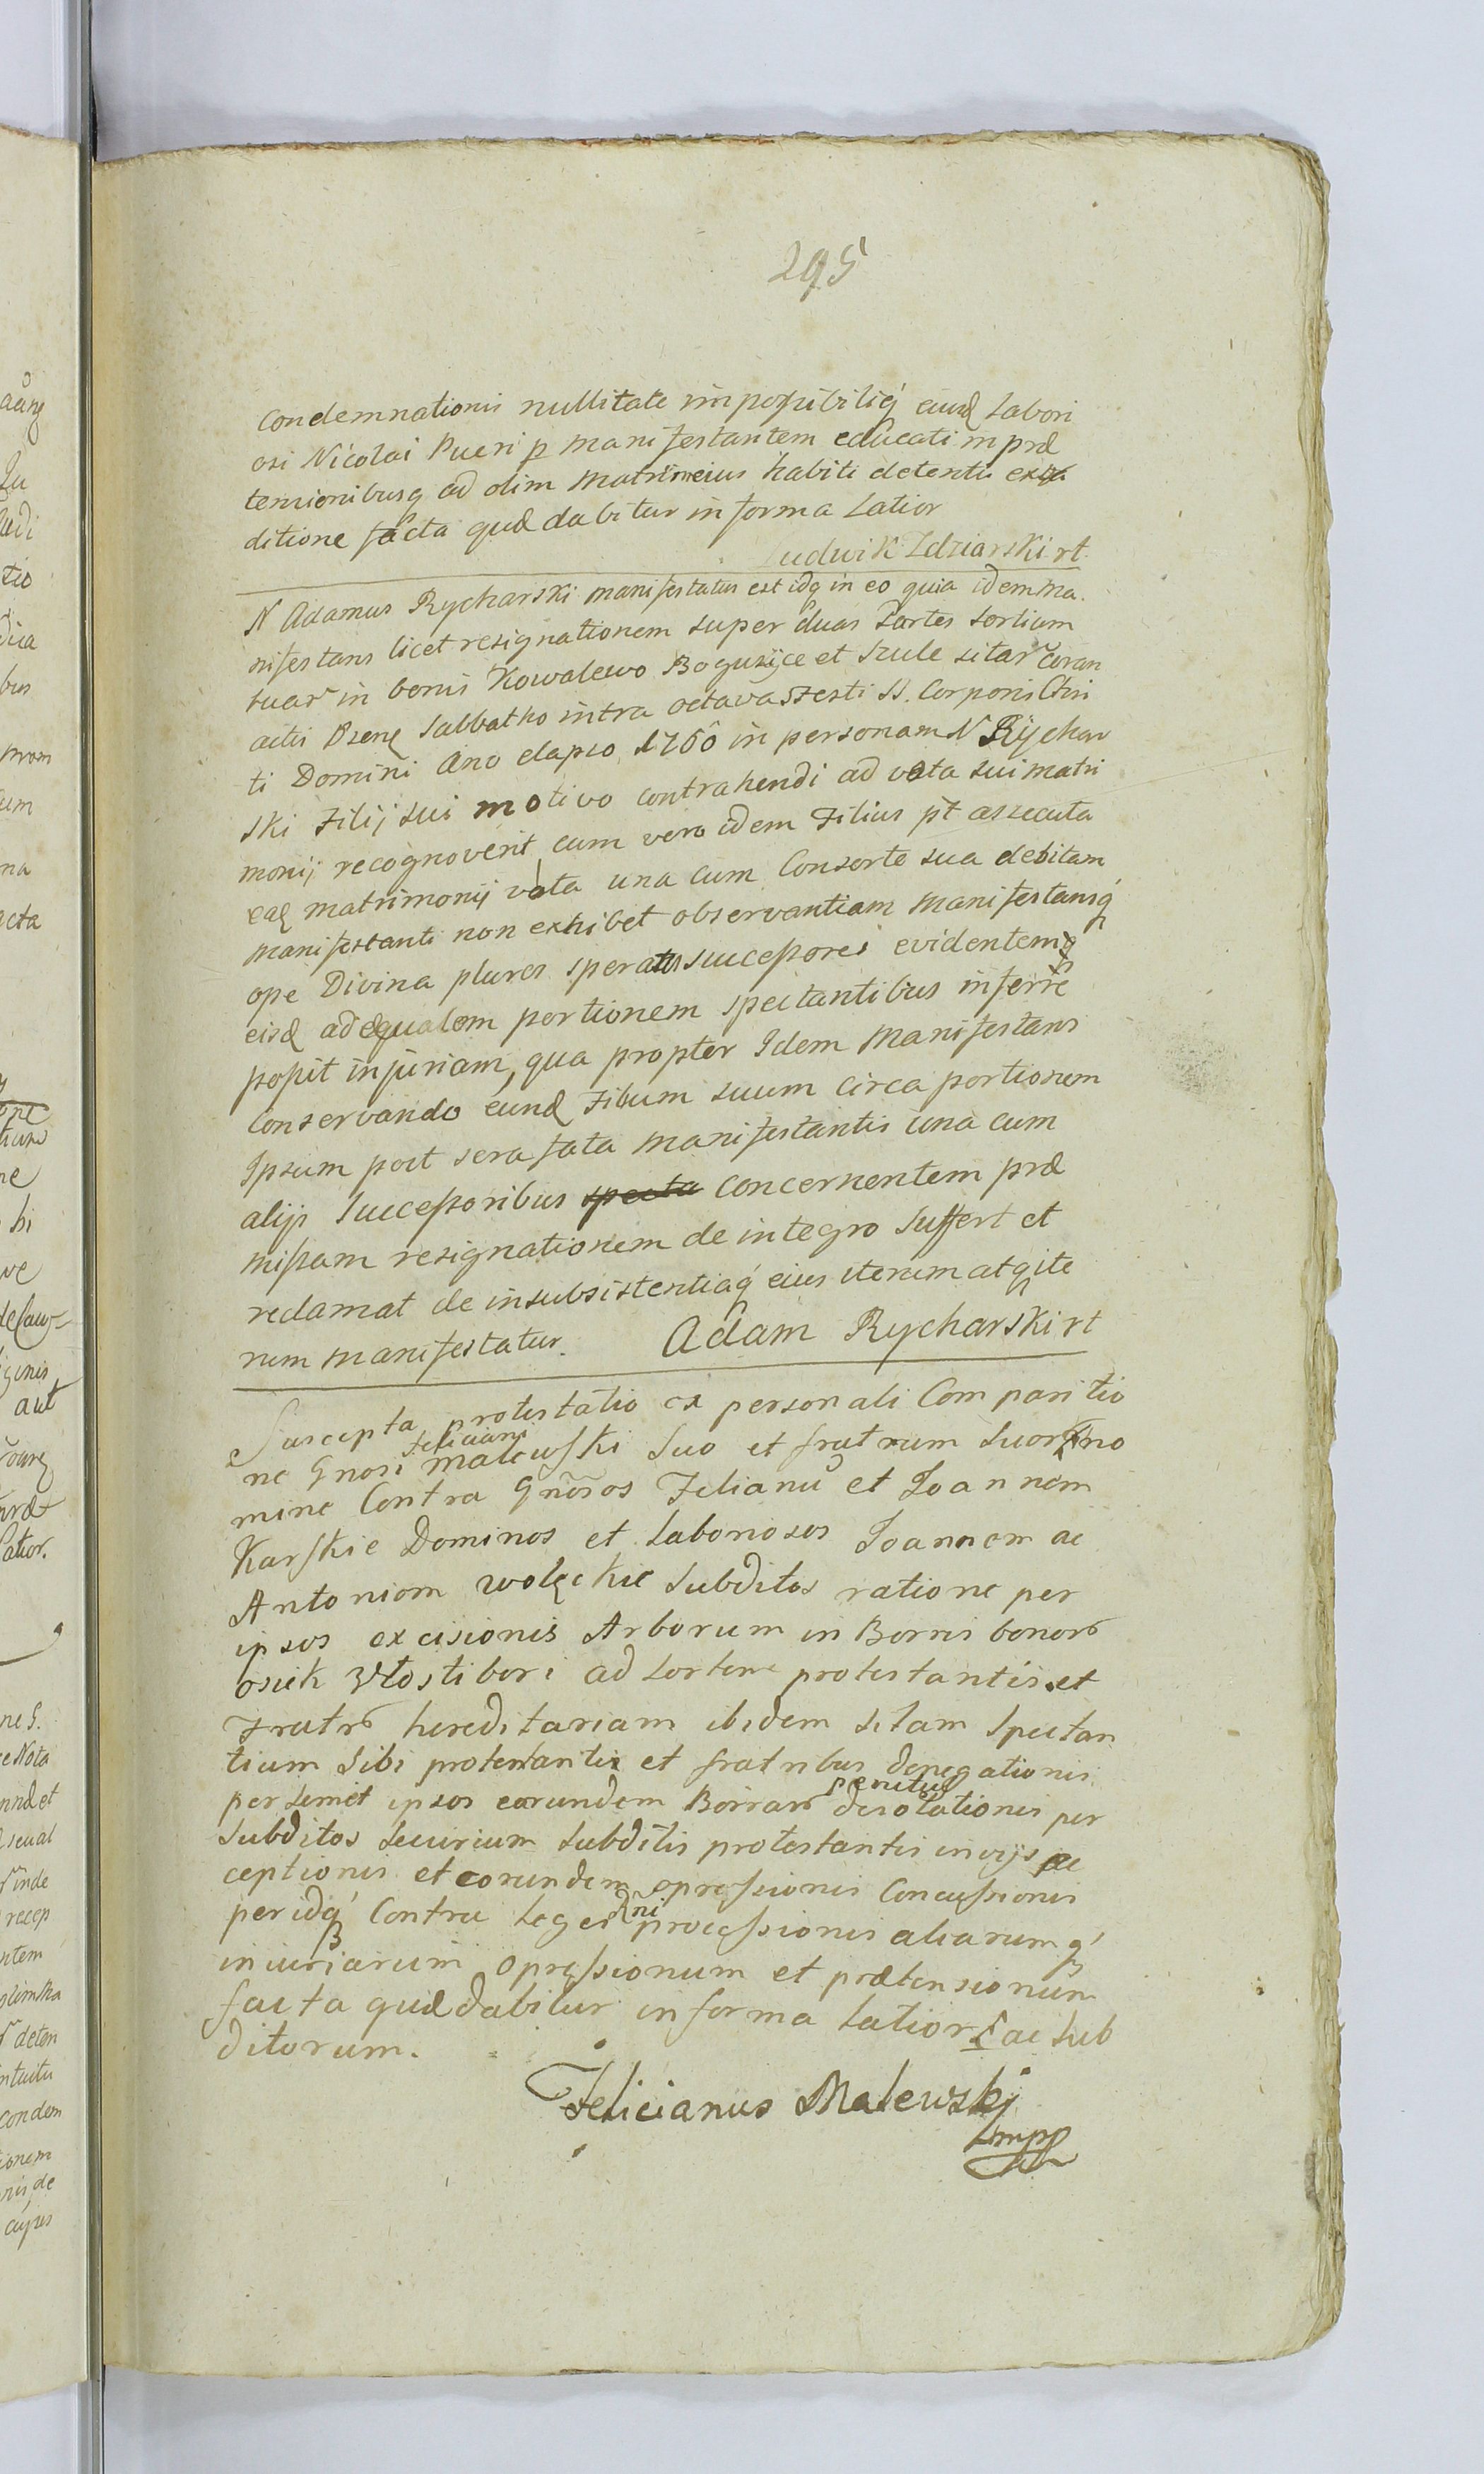 295
condemnationis nullitate impoſsibiliq́ eiusd Labori
osi Nicolai Pueri p manifestantem educati in præ
tensionibusq ad olim Matrem eius habiti detentu
ditione facta quæ dabitur in forma Latior
Ludwik Zdziarski rt
N Adamus Rycharski manifestatus est idq in eo quia idem ma.
nifestans licet resignationem super duas Partes Sortium
suar in bonis Kowalewo Boguszyce et Szule sitar coram
actis Psene Sabbatho intra octavas Festi SS. Corporis Chri
ti Domini Ano elapso 1760 in personam N Rÿchar
ski Filij sui motivo contrahendi ad vota sui matri
monij recognoverit, cum vero idem Filius pt assecuta
eaq matrimonij vota una cum Consorte sua debitam
manifestanti non exhibet observantiam Manifestansq́
ope Divina plures sperans succeſsores evidentemq
eisd adæqualem portionem spectantibus inferre
poſsit injuriam, qua propter Idem Manifestans
Conservando eund Filium suum circa portionem
Ipsum post sera fata manifestantis una cum
alijs Succeſsoribus specta concernentem præ
miſsam resignationem de integro Suffert et
reclamat de insubsistentiaq́ eius iterum atq ite
rum manifestatur. Adam Rycharski rt
Suscepta protestatio ex personali Comparitio
Feliciani
ne Gnosi Malewſki Suo et fratrum Suor no
mine Contra Gnosos Felianu et Joannem
Karſkie Dominos et Laboriosos Joannem ac
Antonium Wolęckie Subditos ratione per
ipsos excisionis Arborum in Borris bonor
osiek Włostibori ad Sortem protestantis et
Fratr hereditariam ibidem sitam Spectan
tium Sibi protestantis et fratribus denegationis
penitus
per semet ipsos earundem Borrar desolationis per
Subditos Securium Subditis protestantis in vijs ac
ceptionis et eorundem opreſsionis Concuſsionis
dni
per idq́ Contra Leges proceſsionis aliarumq́
iniuriarum Opreſsionum et prætensionum
facta quæ dabitur in forma Latior ac Sub
ditorum.
Felicianus Malewskj
mpp